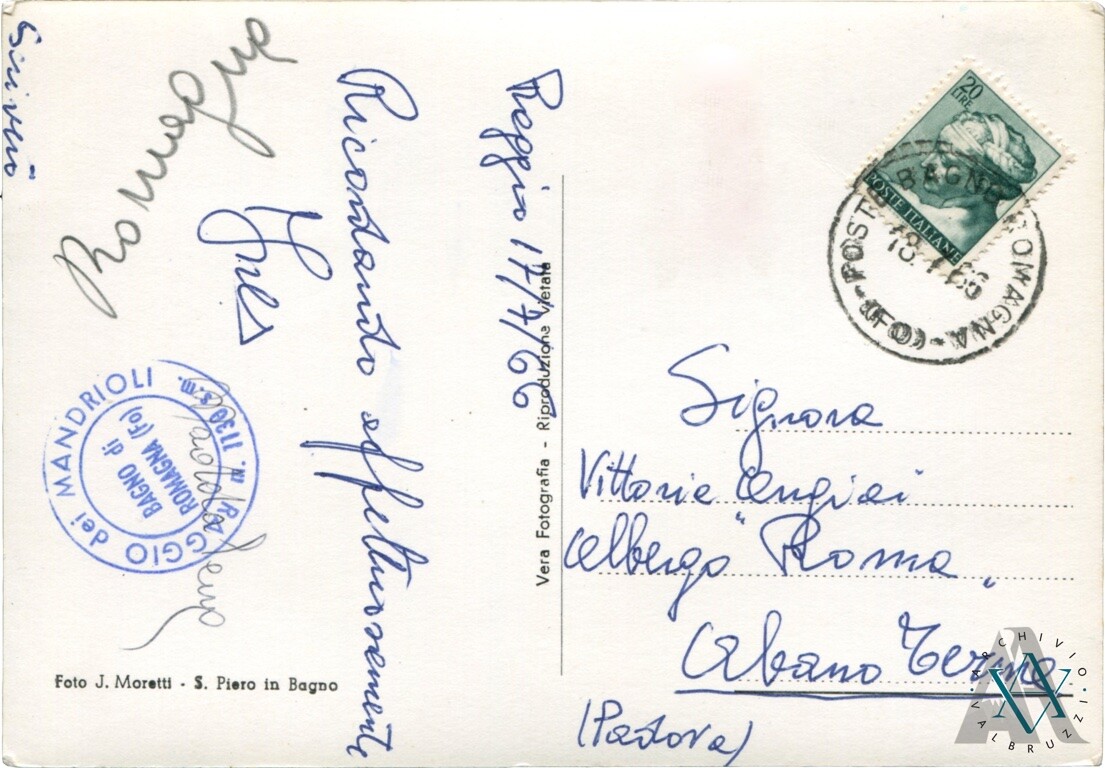 Raggio 17/7/66
Ricordando affettuosamente
Romagna
20
LIRE
POSTE ITALIANE
POSTE BAGNO ROMAGNA
(FO)
RAGGIO dei MANDRIOLI
m. 1130 s.m.
BAGNO di
ROMAGNA (Fo)
Foto J. Moretti - S. Piero in Bagno
Vera Fotografia - Riproduzione Vietata
Signora
Vittoria
Albergo "Roma"
Abano Terme
(Padova)
ARCHIVIO VALBRUZZI